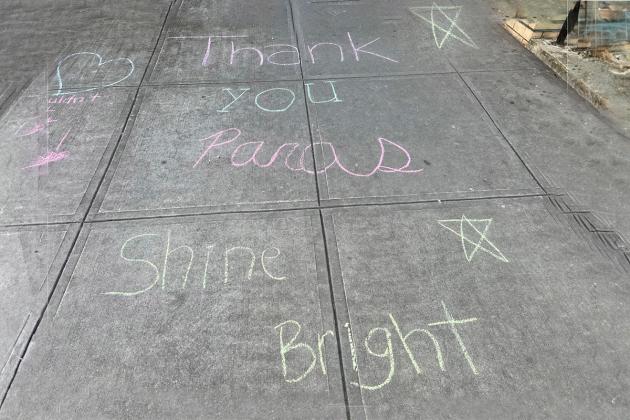 Thank
you
Paras
Shine
Bright